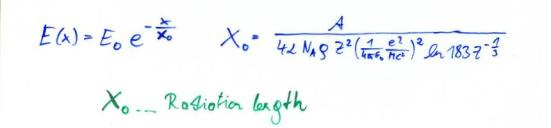 E(x) = E₀ e^{-x/X₀}    X₀ = A / (4α N_A ρ Z² (1/(4πε₀) e²/(mc²))² ln 183 Z^{-1/3})
X₀ ... Radiation length